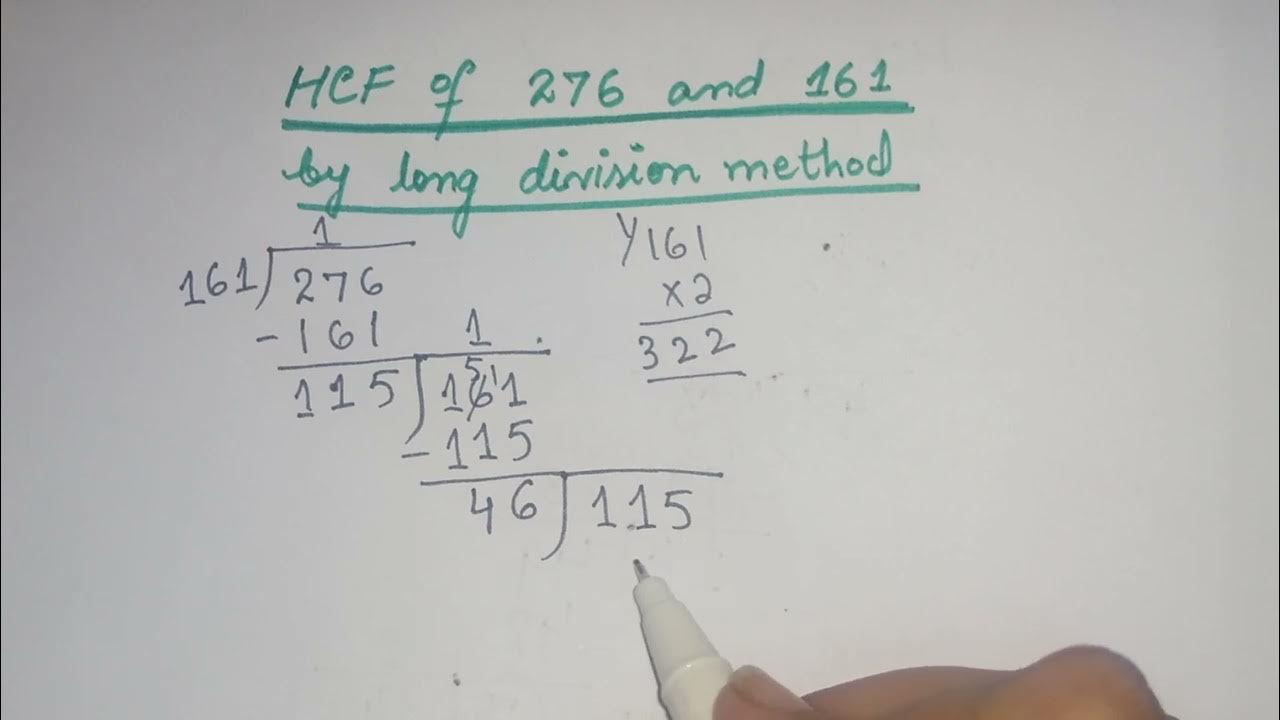 HCF of 276 and 161
by long division method
1
161) 276
- 161
1
115) 161
5 1
- 115
46) 115
161
x2
322